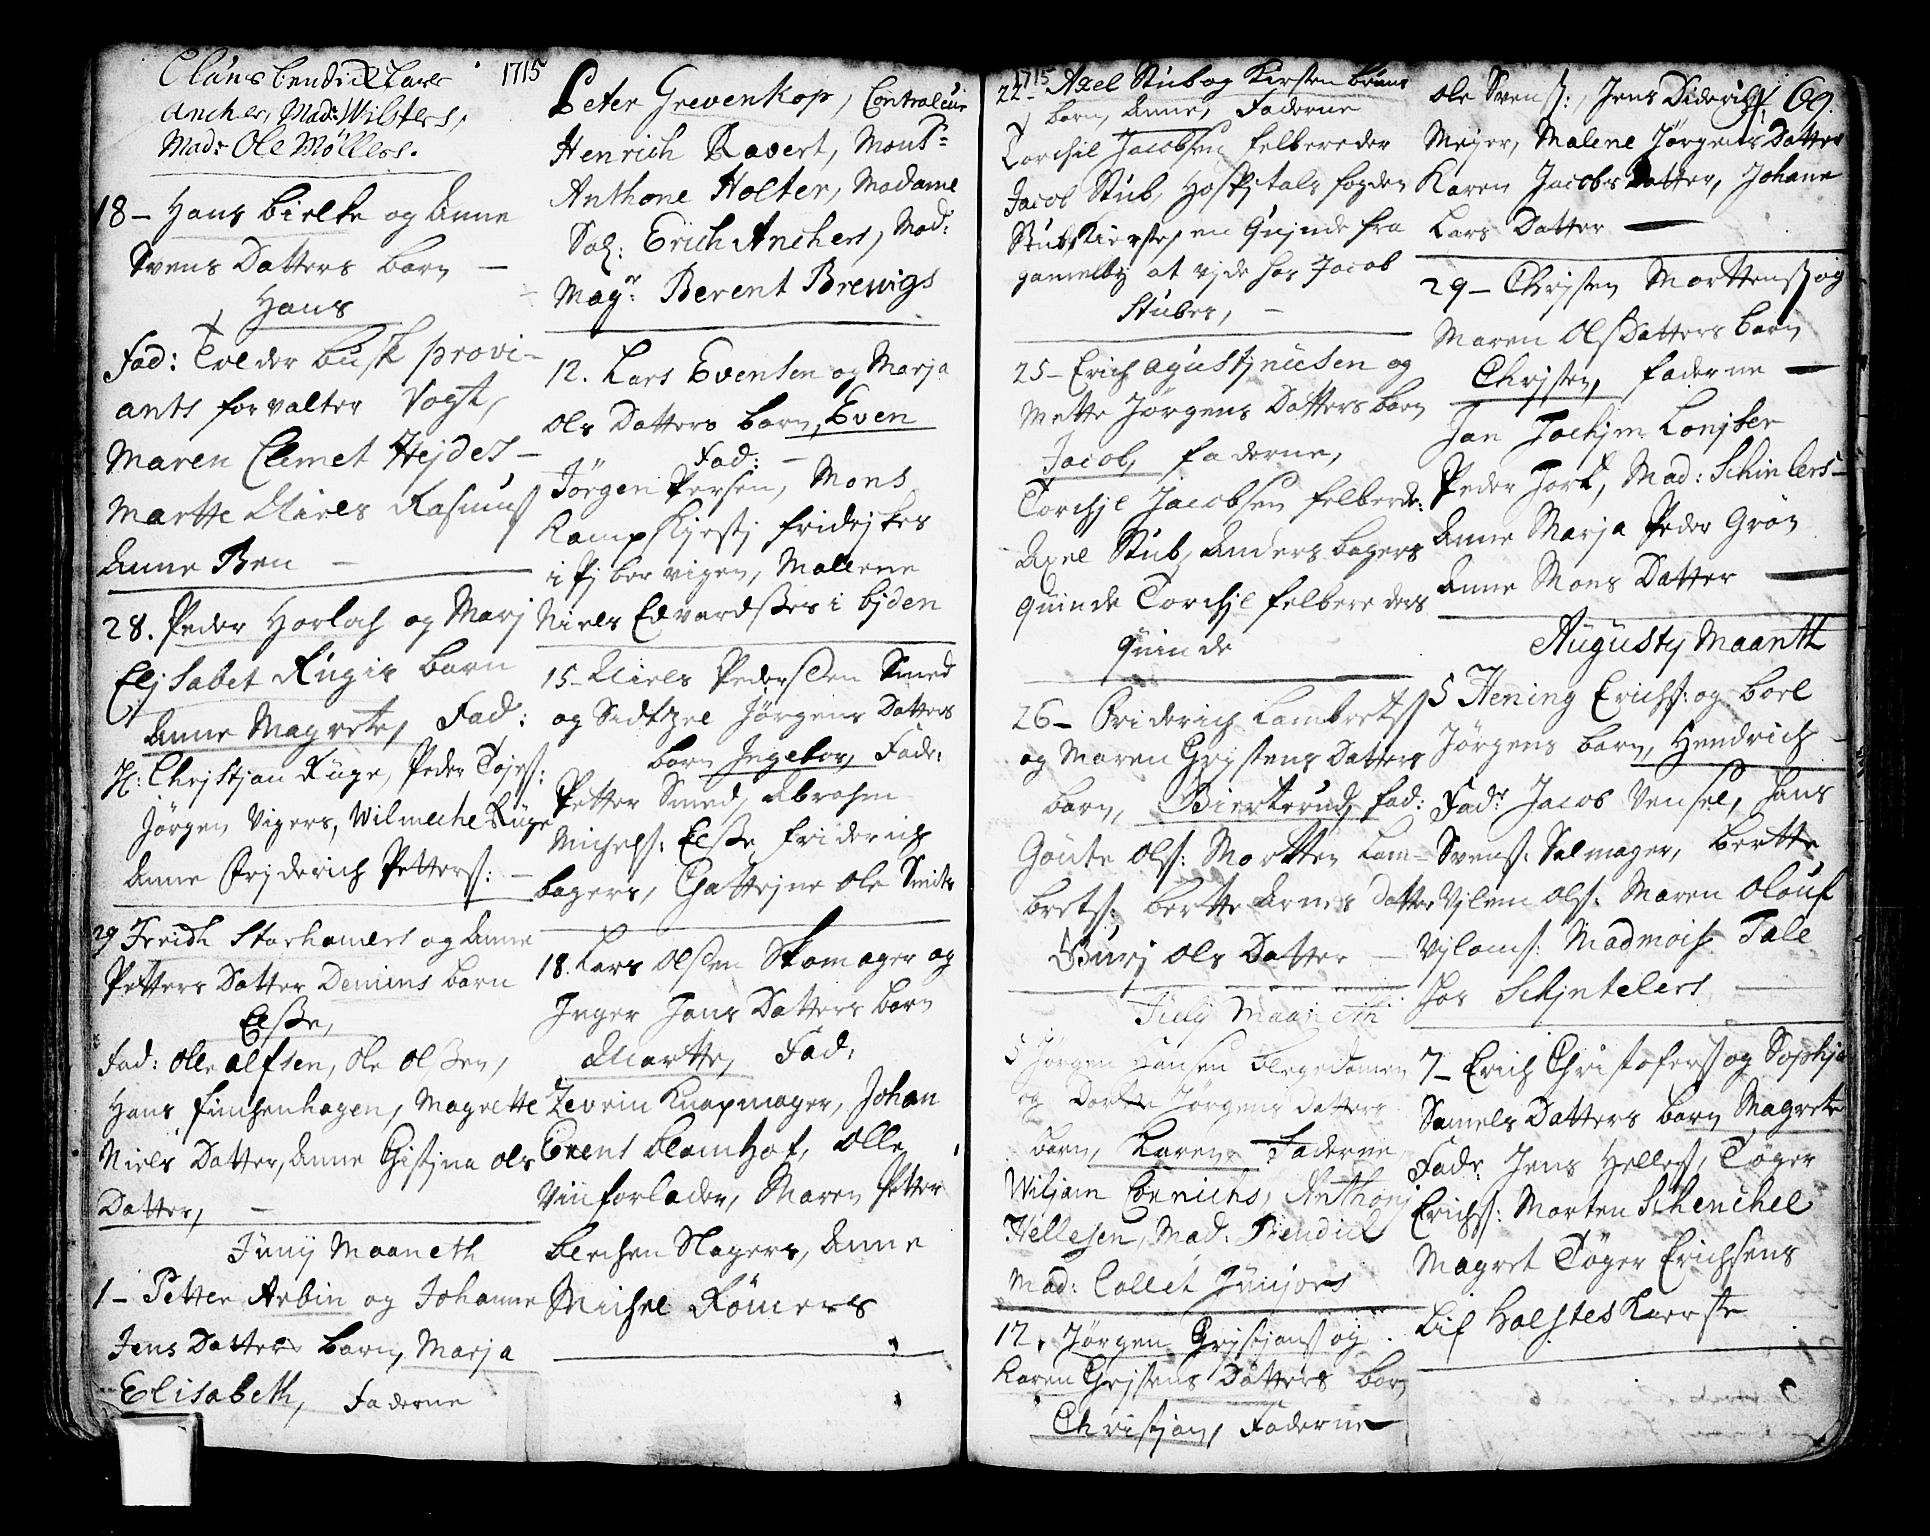 Claus bendix Lars
Ancher, Mad: Wilsters,
Mad: Ole Møllers.
18 – Hans bielke og Anne
Svens Datters barn –
Hans
Fad: Tolder busk provi–
ants forvalter Vogt,
Maren Clemet Hejdes –
Martte Niels Rasmus
Anne Ben –
28. Peder Horloch og Marj
Elisabet Rugis barn
Anne Magrete, Fad:
H: Christian Rüge, Peder Tøjes:
Jørgen Vigers, Wilmeche Rüge
Anne Friderich Petters: –
29 Fridh Storhamers og Anne
Petters Datter Denins barn
Elsse,
Fad: Ole alfsen, Ole Olssen,
Hans finchenhagen, Magrette
Niels Datter, Anne Gistina ols
Datter, –
Junij Maaneth
1 – Petter Arbin og Johanne
Jens Datters barn, Marja
Elisabeth, Faderne
1715
Peter Grevenkop, Contraleur
Henrich Ravert, Mons:
Anthone Holter, Madame
Sal: Erich Anchers, Mad:
Magr: Berent Brewigs
12. Lars Evensen og Marja
Ols Datters barn, Even
Fad: –
Jørgen Persen, Mons
Kamp Kjesti fridrikes
i Pjbervigen, Mallene
Niels Edvardsses i bjden
15 – Niels Pedersen Smed
og Sidtzel Jørgens Datters
barn Ingebor, Fade:
Petter Smed, Abrahm
Michels: Elsse friderich
bagers, Cattrjne Ole Smits
18. Lars Olssen Skomager og
Inger Hans Datters barn
Martte, Fad:
Zevrin Knapmager, Johan
Erent blomhof, Olle
Viinforlader, Maren Petter
blechen Slagers, Anne
Michel Rømers
1715
22 – Axel Stub og Kirsten bruns
barn, Anne, Faderne
Torchil Jacobsen felbereder
Jacob Stub, Hospitals fogden
Stubs Kierste, en Quinde fra
gamelby at vjde hos Jacob
Stubes, –
25 – Erich agustjnusen og
Mette Jørgens Datters barn
Jacob, faderne,
Torchjl Jacobsen felberede:
Axel Stub, Anders bagers
Quinde Torchjl felbereders
Quinde
26 – Friderich Lambrets
og Maren Gristens Datters
barn, Bierterud, fad:
Goute Ols: Mortten Lam–
brets: bertte Arnes Datter
Burj Ols Datter –
Julij Maaneth
5 Jørgen Hansen blegedamen
og Dorte Jørgens datters
barn, Karen, Faderne
Wiljam Cornichs, Anthonj
Hellesen, Mad: Bendicks
Mad: Collet Junjors
17. Jørgen Gristjans og
Karen Gristens Datters bar
Christian, Faderne
69.
Ole Svens:, Jens Diderichs
Mejer, Malene Jørgens Datter
Karen Jacobs Datter, Johane
Lars Datter –
29 – Christen Morttens og
Maren Ols Datters barn
Christen, faderne –
Jan Jochim Lonjser
Peder Jork, Mad: Schinlers –
Anne Marja Peder Grøn
Anne Mons Datter –
Augustj Maanth
5 Hening Erichs: og boel
Jørgens barn, Hendrich
Fadr Jacob Vensel, Hans
Svens: Salmager, bertte
Vjlem Ols: Maren Olouf
Vjloms: Madmois Tale
hos Schjntelers –
7 – Erich Christofers og Sophja
Samels Datters barn Magrete
Fadr Jens Helles, Tøger
Erichs: Morten Schenchel
Magret Tøger Erichsens
Lif holstes Kierste